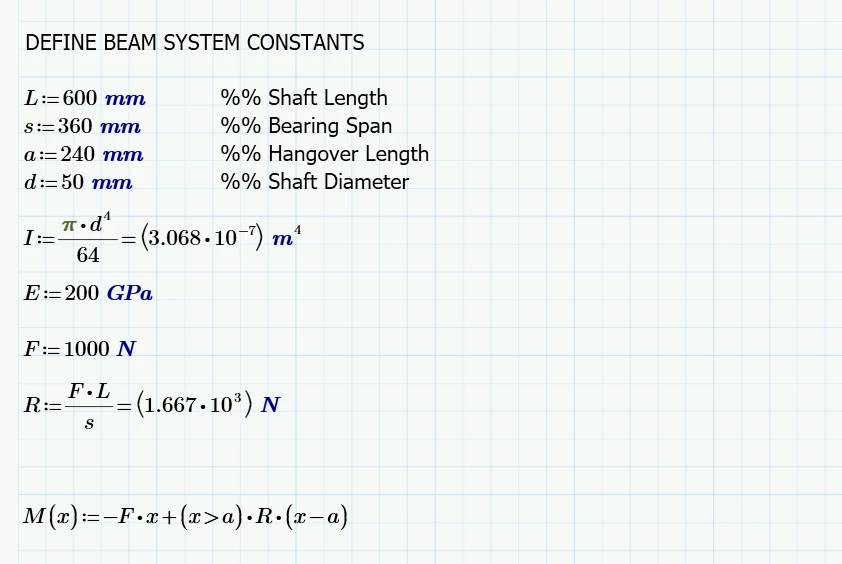 DEFINE BEAM SYSTEM CONSTANTS
L:=600 mm %% Shaft Length
s:=360 mm %% Bearing Span
a:=240 mm %% Hangover Length
d:=50 mm %% Shaft Diameter
I:=π·d⁴/64=(3.068·10⁻⁷) m⁴
E:=200 GPa
F:=1000 N
R:=F·L/s=(1.667·10³) N
M(x):=−F·x+(x>a)·R·(x−a)